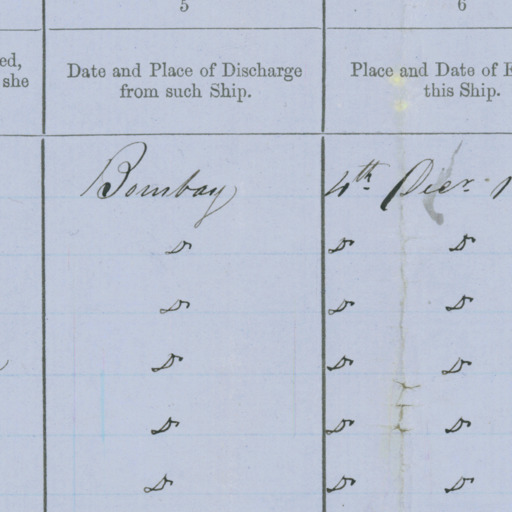 5
6
ed,
she
Date and Place of Discharge
from such Ship.
Place and Date of E
this Ship.
Bombay 4th Decr.
Do Do Do
Do Do Do
Do Do Do
Do Do Do
Do Do Do